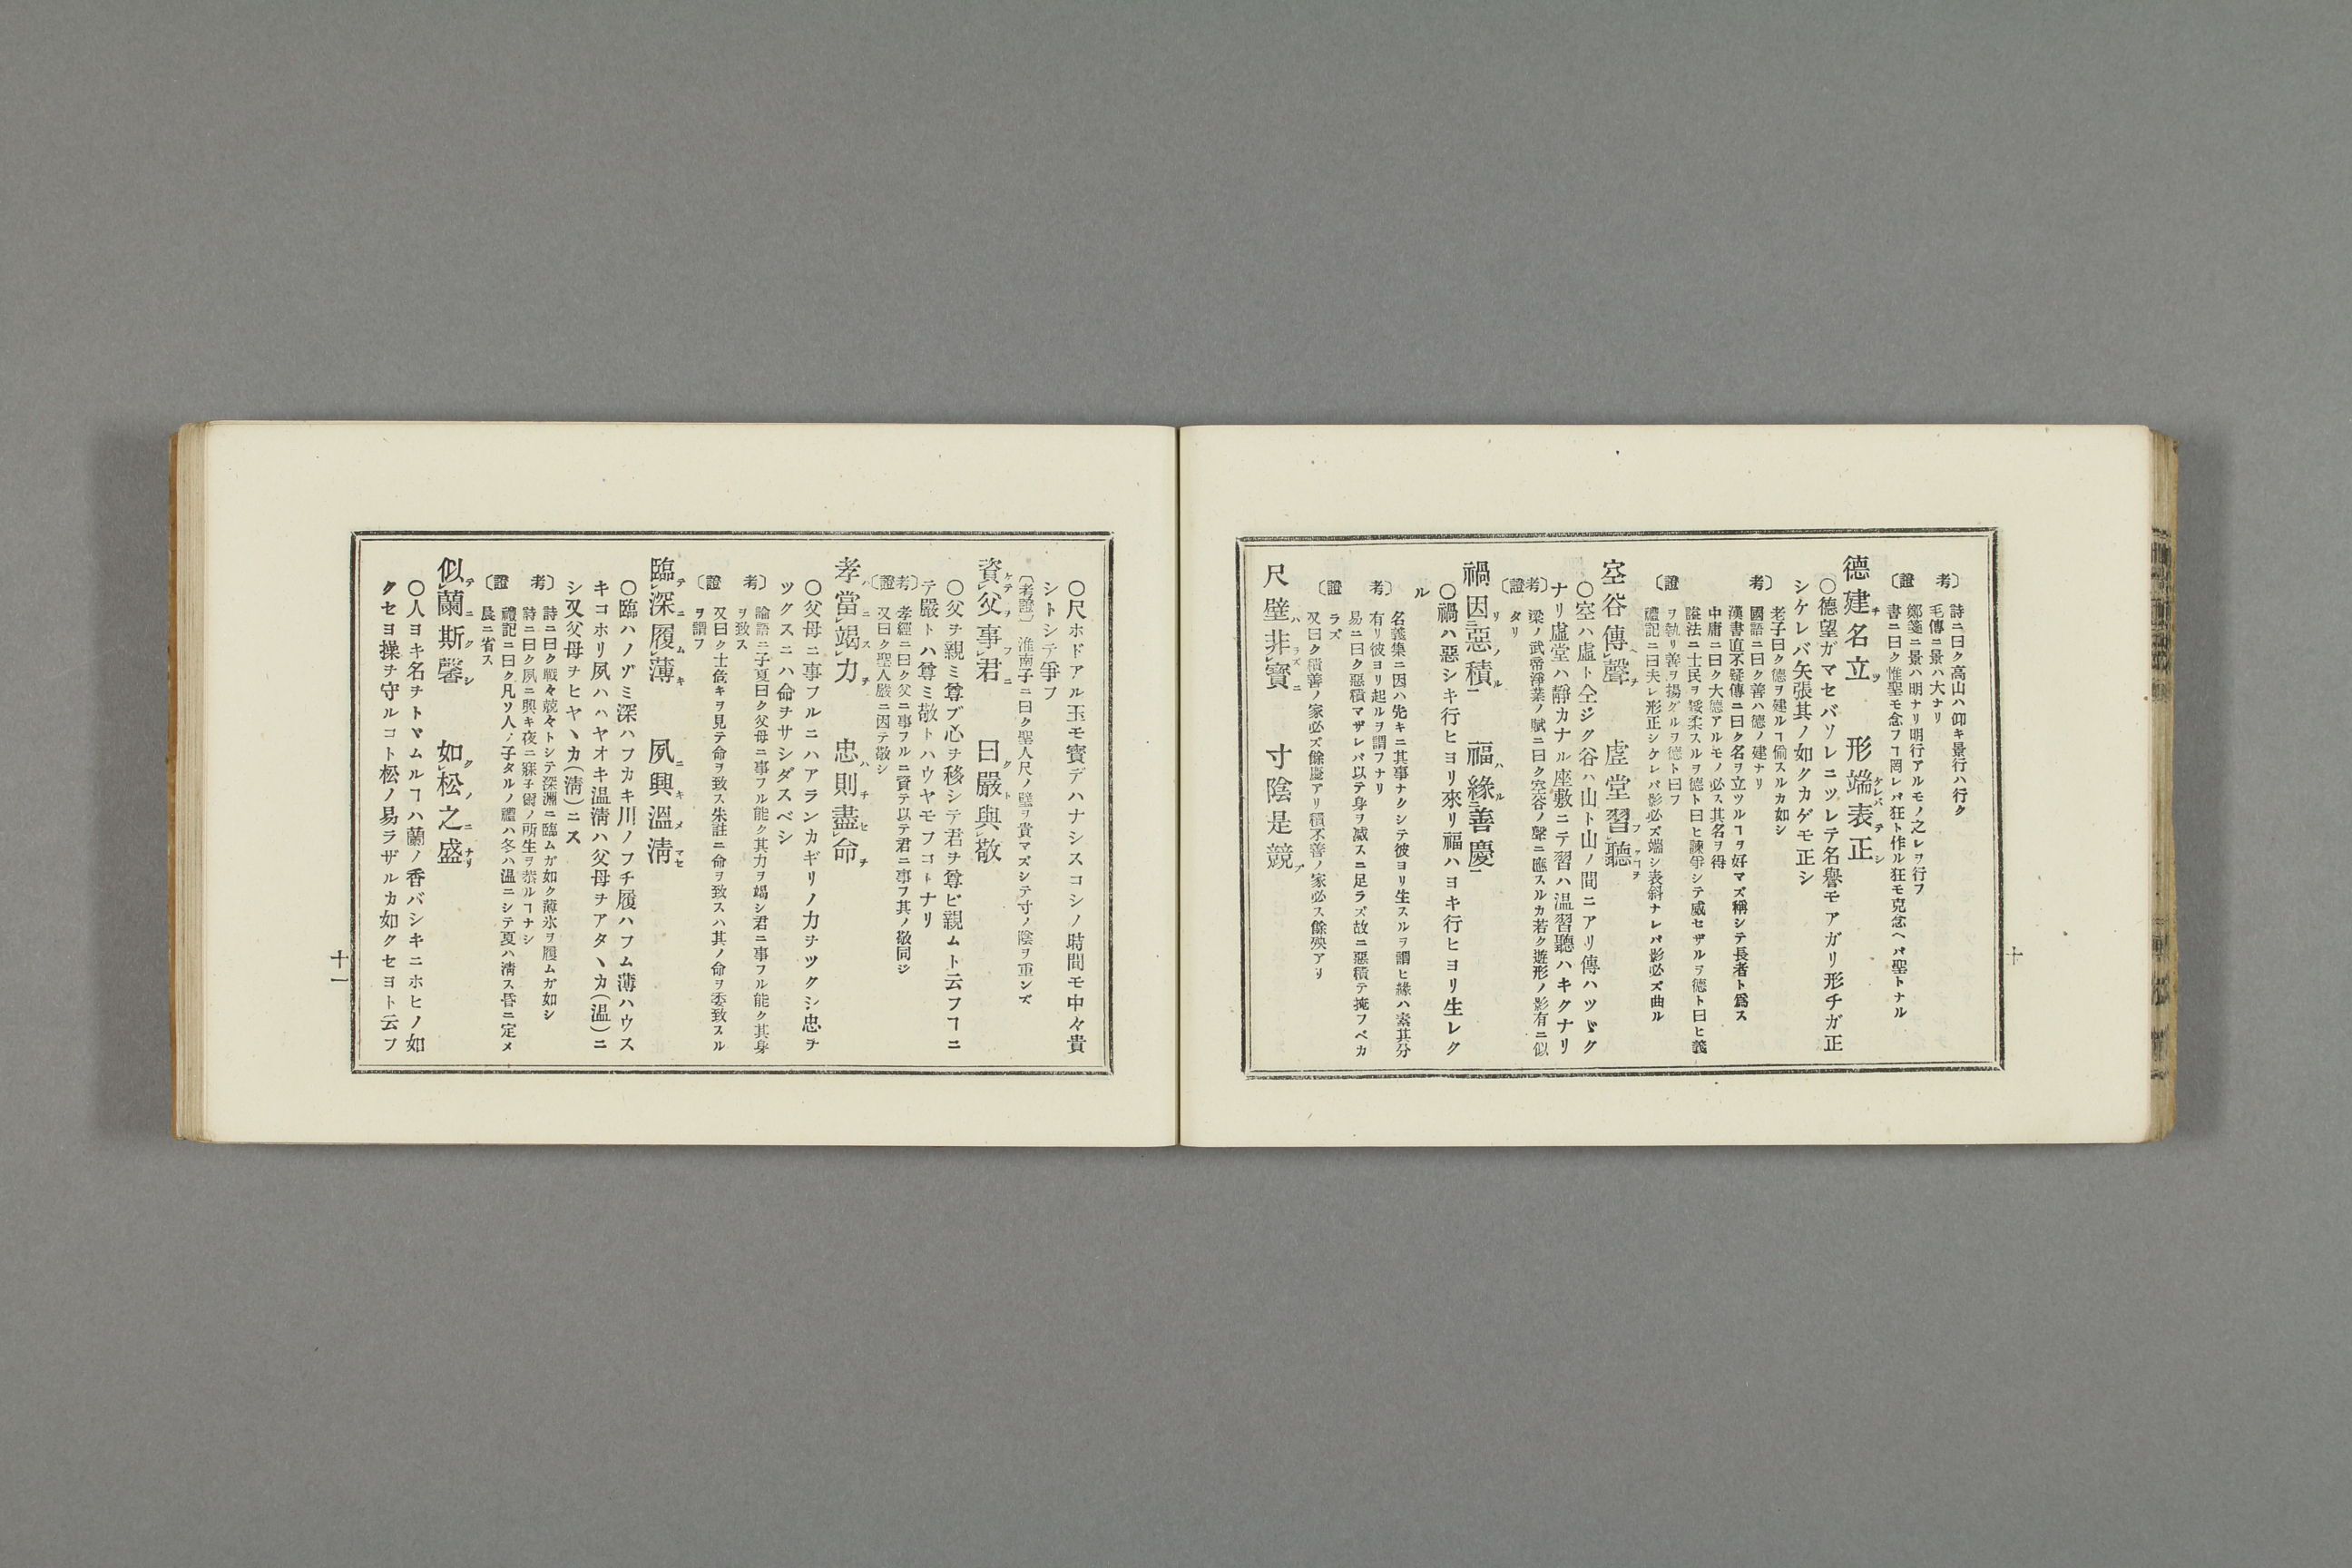 考〕詩ニ曰ク高山ハ仰キ景行ハ行ク
毛傳ニ景ハ大ナリ
鄭箋ニ景ハ明ナリ明行アルモノ之レヲ行フ
〔證書ニ曰ク惟聖モ念フヿ罔レバ狂ト作ル狂モ克念ヘバ聖トナル
德建チ名立ツ　形端ケレバ表テ正シ
〇德望ガマセバソレニツレテ名譽モアガリ形チガ正
シケレバ矢張其ノ如クカゲモ正シ
老子曰ク德ヲ建ルヿ偷スルカ如シ
考〕國語ニ曰ク善ハ德ノ建ナリ
漢書直不疑傳ニ曰ク名ヲ立ツルヿヲ好マズ稱シテ長者ト爲ス
中庸ニ曰ク大德アルモノ必ス其名ヲ得
謚法ニ士民ヲ綏柔スルヲ德ト曰ヒ諫爭シテ威セザルヲ德ト曰ヒ義
ヲ執リ善ヲ揚グルヲ德ト曰フ
〔證禮記ニ曰夫レ形正シケレバ影必ズ端シ表斜ナレバ影必ズ曲ル
空谷傳ヘ聲ヲ　虛堂習フ聽ヿヲ
〇空ハ虛ト仝ジク谷ハ山ト山ノ間ニアリ傳ハツヾク
ナリ虛堂ハ靜カナル座敷ニテ習ハ温習聽ハキクナリ
考〕梁ノ武帝淨業ノ賦ニ曰ク空谷ノ聲ニ應スルカ若ク遊形ノ影有ニ似
〔證タリ
禍因リ惡ノ積ル二一　福ハ緣ル善慶二一
〇禍ハ惡シキ行ヒヨリ來リ福ハヨキ行ヒヨリ生レク
ル
名義集ニ因ハ先キニ其事ナクシテ彼ヨリ生スルヲ謂ヒ緣ハ素其分
考〕有リ彼ヨリ起ルヲ謂フナリ
易ニ曰ク惡積マザレバ以テ身ヲ滅スニ足ラズ故ニ惡積テ掩フベカ
〔證ラズ
又曰ク積善ノ家必ズ餘慶アリ積不善ノ家必ス餘殃アリ
尺璧ハ非ラズレ寶ニ　寸陰是競フ
十
〇尺ホドアル玉モ寶デハナシスコシノ時間モ中々貴
シトシテ爭フ
〔考證〕淮南子ニ曰ク聖人尺ノ璧ヲ貴マズシテ寸ノ陰ヲ重ンズ
資ケテレ父ヲ事フレ君ニ　曰ク嚴ト與レ敬
〇父ヲ親ミ尊ブ心ヲ移シテ君ヲ尊ビ親ムト云フヿニ
テ嚴トハ尊ミ敬トハウヤモフコトナリ
考〕孝經ニ曰ク父ニ事フルニ資テ以テ君ニ事フ其ノ敬同ジ
〔證又曰ク聖人嚴ニ因テ敬シ
孝ハ當ニスレ竭ス力ヲ　忠ハ則チ盡セレ命ヲ
〇父母ニ事フルニハアランカギリノ力ヲツクシ忠ヲ
ツクスニハ命ヲサシダスベシ
論語ニ子夏曰ク父母ニ事フル能ク其力ヲ竭シ君ニ事フル能ク其身
考〕ヲ致ス
又曰ク士危キヲ見テ命ヲ致ス朱註ニ命ヲ致スハ其ノ命ヲ委致スル
〔證ヲ謂フ
臨テレ深ニ履ムレ薄キ　夙ニ興キ溫メ凊マセ
〇臨ハノゾミ深ハフカキ川ノフチ履ハフム薄ハウス
キコホリ夙ハハヤオキ温凊ハ父母ヲアタヽカ(溫)ニ
シ又父母ヲヒヤヽカ(凊)ニス
詩ニ曰ク戰々兢々トシテ深淵ニ臨ムガ如ク薄氷ヲ履ムガ如シ
考〕詩ニ曰ク夙ニ興キ夜ニ寐子爾ノ所生ヲ忝ルヿナシ
禮記ニ曰ク凡ソ人ノ子タルノ禮ハ冬ハ溫ニシテ夏ハ凊ス昏ニ定メ
〔證晨ニ省ス
似テレ蘭ニ斯ク馨シ　如クレ松ノ之ニ盛ナリ
〇人ヨキ名ヲトヾムルヿハ蘭ノ香バシキニホヒノ如
クセヨ操ヲ守ルコト松ノ易ラザルカ如クセヨト云フ
十一